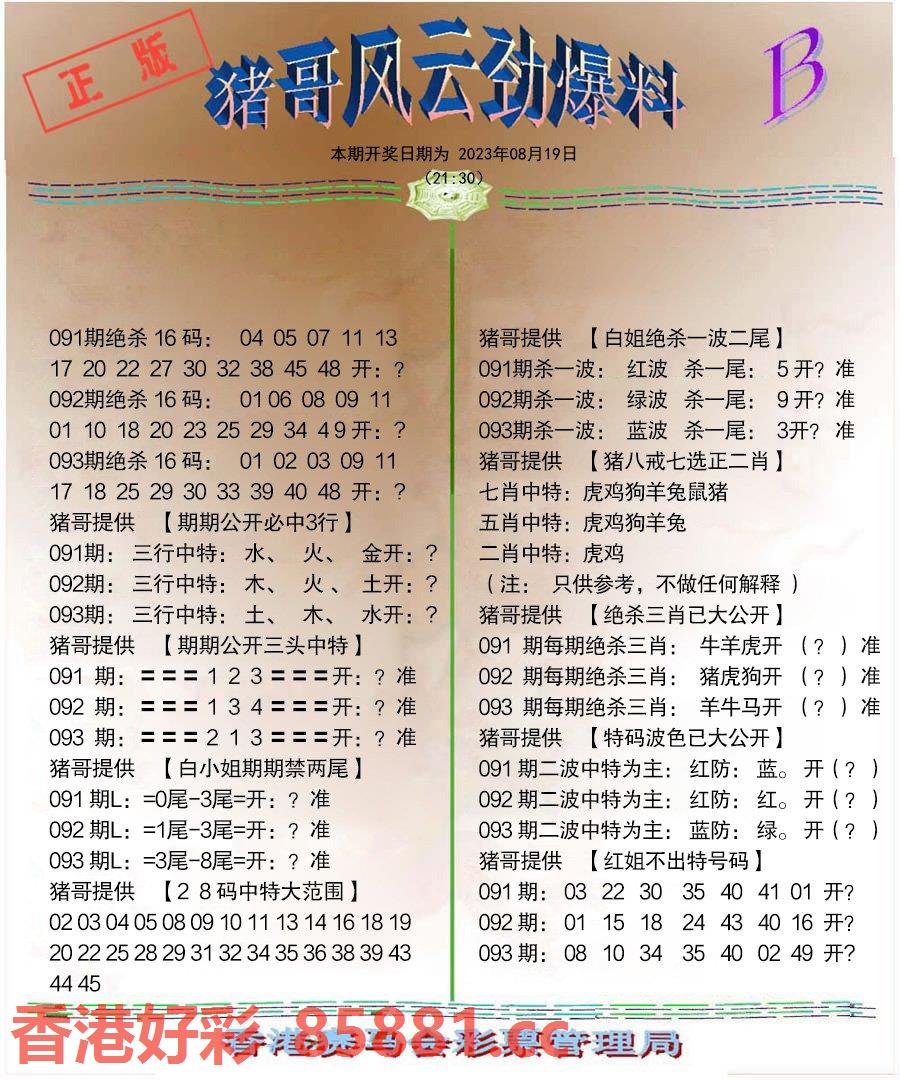 正版
猪哥风云劲爆料
B
本期开奖日期为 2023年08月19日
(21:30)
091期绝杀 16 码： 04 05 07 11 13
17 20 22 27 30 32 38 45 48 开：?
092期绝杀 16 码： 01 06 08 09 11
01 10 18 20 23 25 29 34 4 9 开：?
093期绝杀 16 码： 01 02 03 09 11
17 18 25 29 30 33 39 40 48 开：?
猪哥提供 【期期公开必中3行】
091期： 三行中特： 水、 火、 金开：?
092期： 三行中特： 木、 火、 土开：?
093期： 三行中特： 土、 木、 水开：?
猪哥提供 【期期公开三头中特】
091 期：＝＝＝1 2 3＝＝＝开：? 准
092 期：＝＝＝1 3 4＝＝＝开：? 准
093 期：＝＝＝2 1 3＝＝＝开：? 准
猪哥提供 【白小姐期期禁两尾】
091 期L：=0尾-3尾=开：? 准
092 期L：=1尾-3尾=开：? 准
093 期L：=3尾-8尾=开：? 准
猪哥提供 【2 8 码中特大范围】
02 03 04 05 08 09 10 11 13 14 16 18 19
20 22 25 28 29 31 32 34 35 36 38 39 43
44 45
猪哥提供 【白姐绝杀一波二尾】
091期杀一波： 红波 杀一尾： 5 开? 准
092期杀一波： 绿波 杀一尾： 9 开? 准
093期杀一波： 蓝波 杀一尾： 3开? 准
猪哥提供 【猪八戒七选正二肖】
七肖中特：虎鸡狗羊兔鼠猪
五肖中特：虎鸡狗羊兔
二肖中特：虎鸡
（注： 只供参考，不做任何解释 ）
猪哥提供 【绝杀三肖已大公开】
091 期每期绝杀三肖： 牛羊虎开 （? ）准
092 期每期绝杀三肖： 猪虎狗开 （? ）准
093 期每期绝杀三肖： 羊牛马开 （? ）准
猪哥提供 【特码波色已大公开】
091 期二波中特为主：红防：蓝。开（? ）
092 期二波中特为主：红防：红。开（? ）
093 期二波中特为主：蓝防：绿。开（? ）
猪哥提供 【红姐不出特号码】
091 期： 03 22 30 35 40 41 01 开?
092 期： 01 15 18 24 43 40 16 开?
093 期： 08 10 34 35 40 02 49 开?
香港好彩 85881.cc
香港赛马会彩票管理局